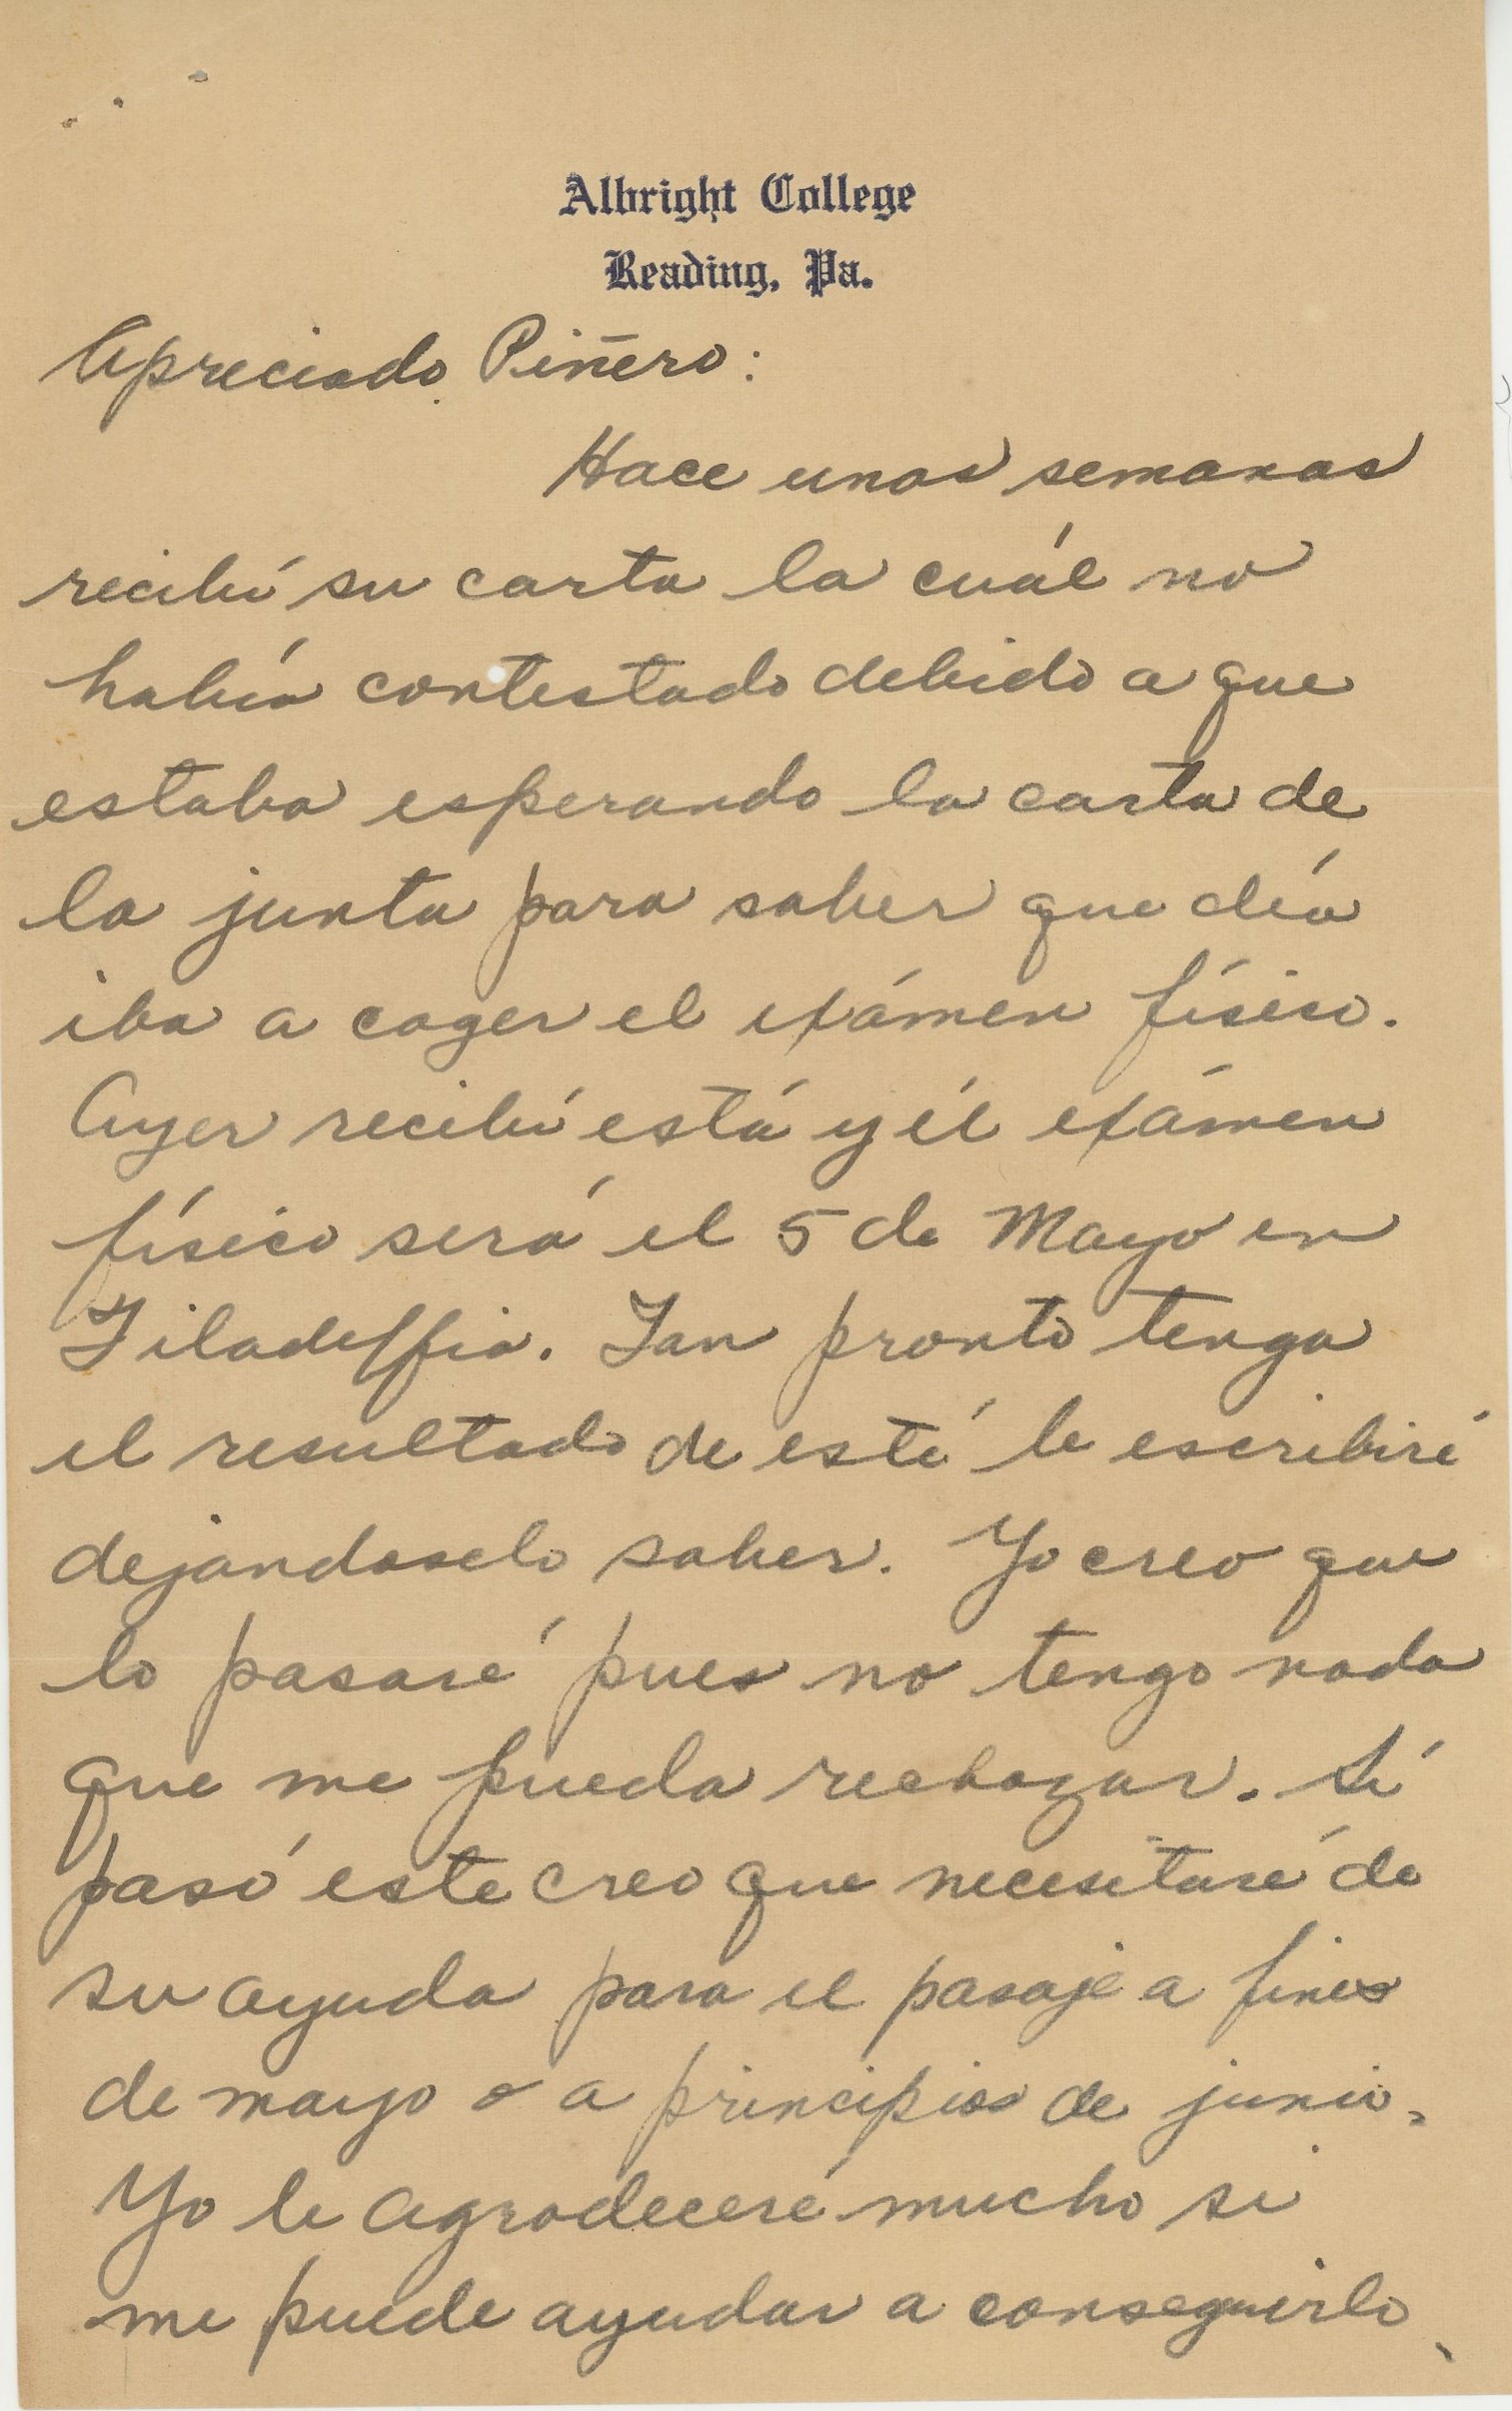 Albright College
Reading, Pa.
Apreciado Piñero:
Hace unas semanas
recibí su carta la cuál no
había contestado debido a que
estaba esperando la carta de
la junta para saber que día
iba a coger el exámen físico.
Ayer recibí está y él exámen
físico será el 5 de Mayo en
Filadelfia. Tan pronto tenga
el resultado de esté le escribiré
dejandoselo saber. Yo creo que
lo pasaré pues no tengo nada
que me pueda rechazar. Sí
pasó este creo que necesitaré de
su ayuda para el pasaje a fines
de mayo o a principios de junio.
Yo le agradeceré mucho si
me puede ayudar a conseguirlo